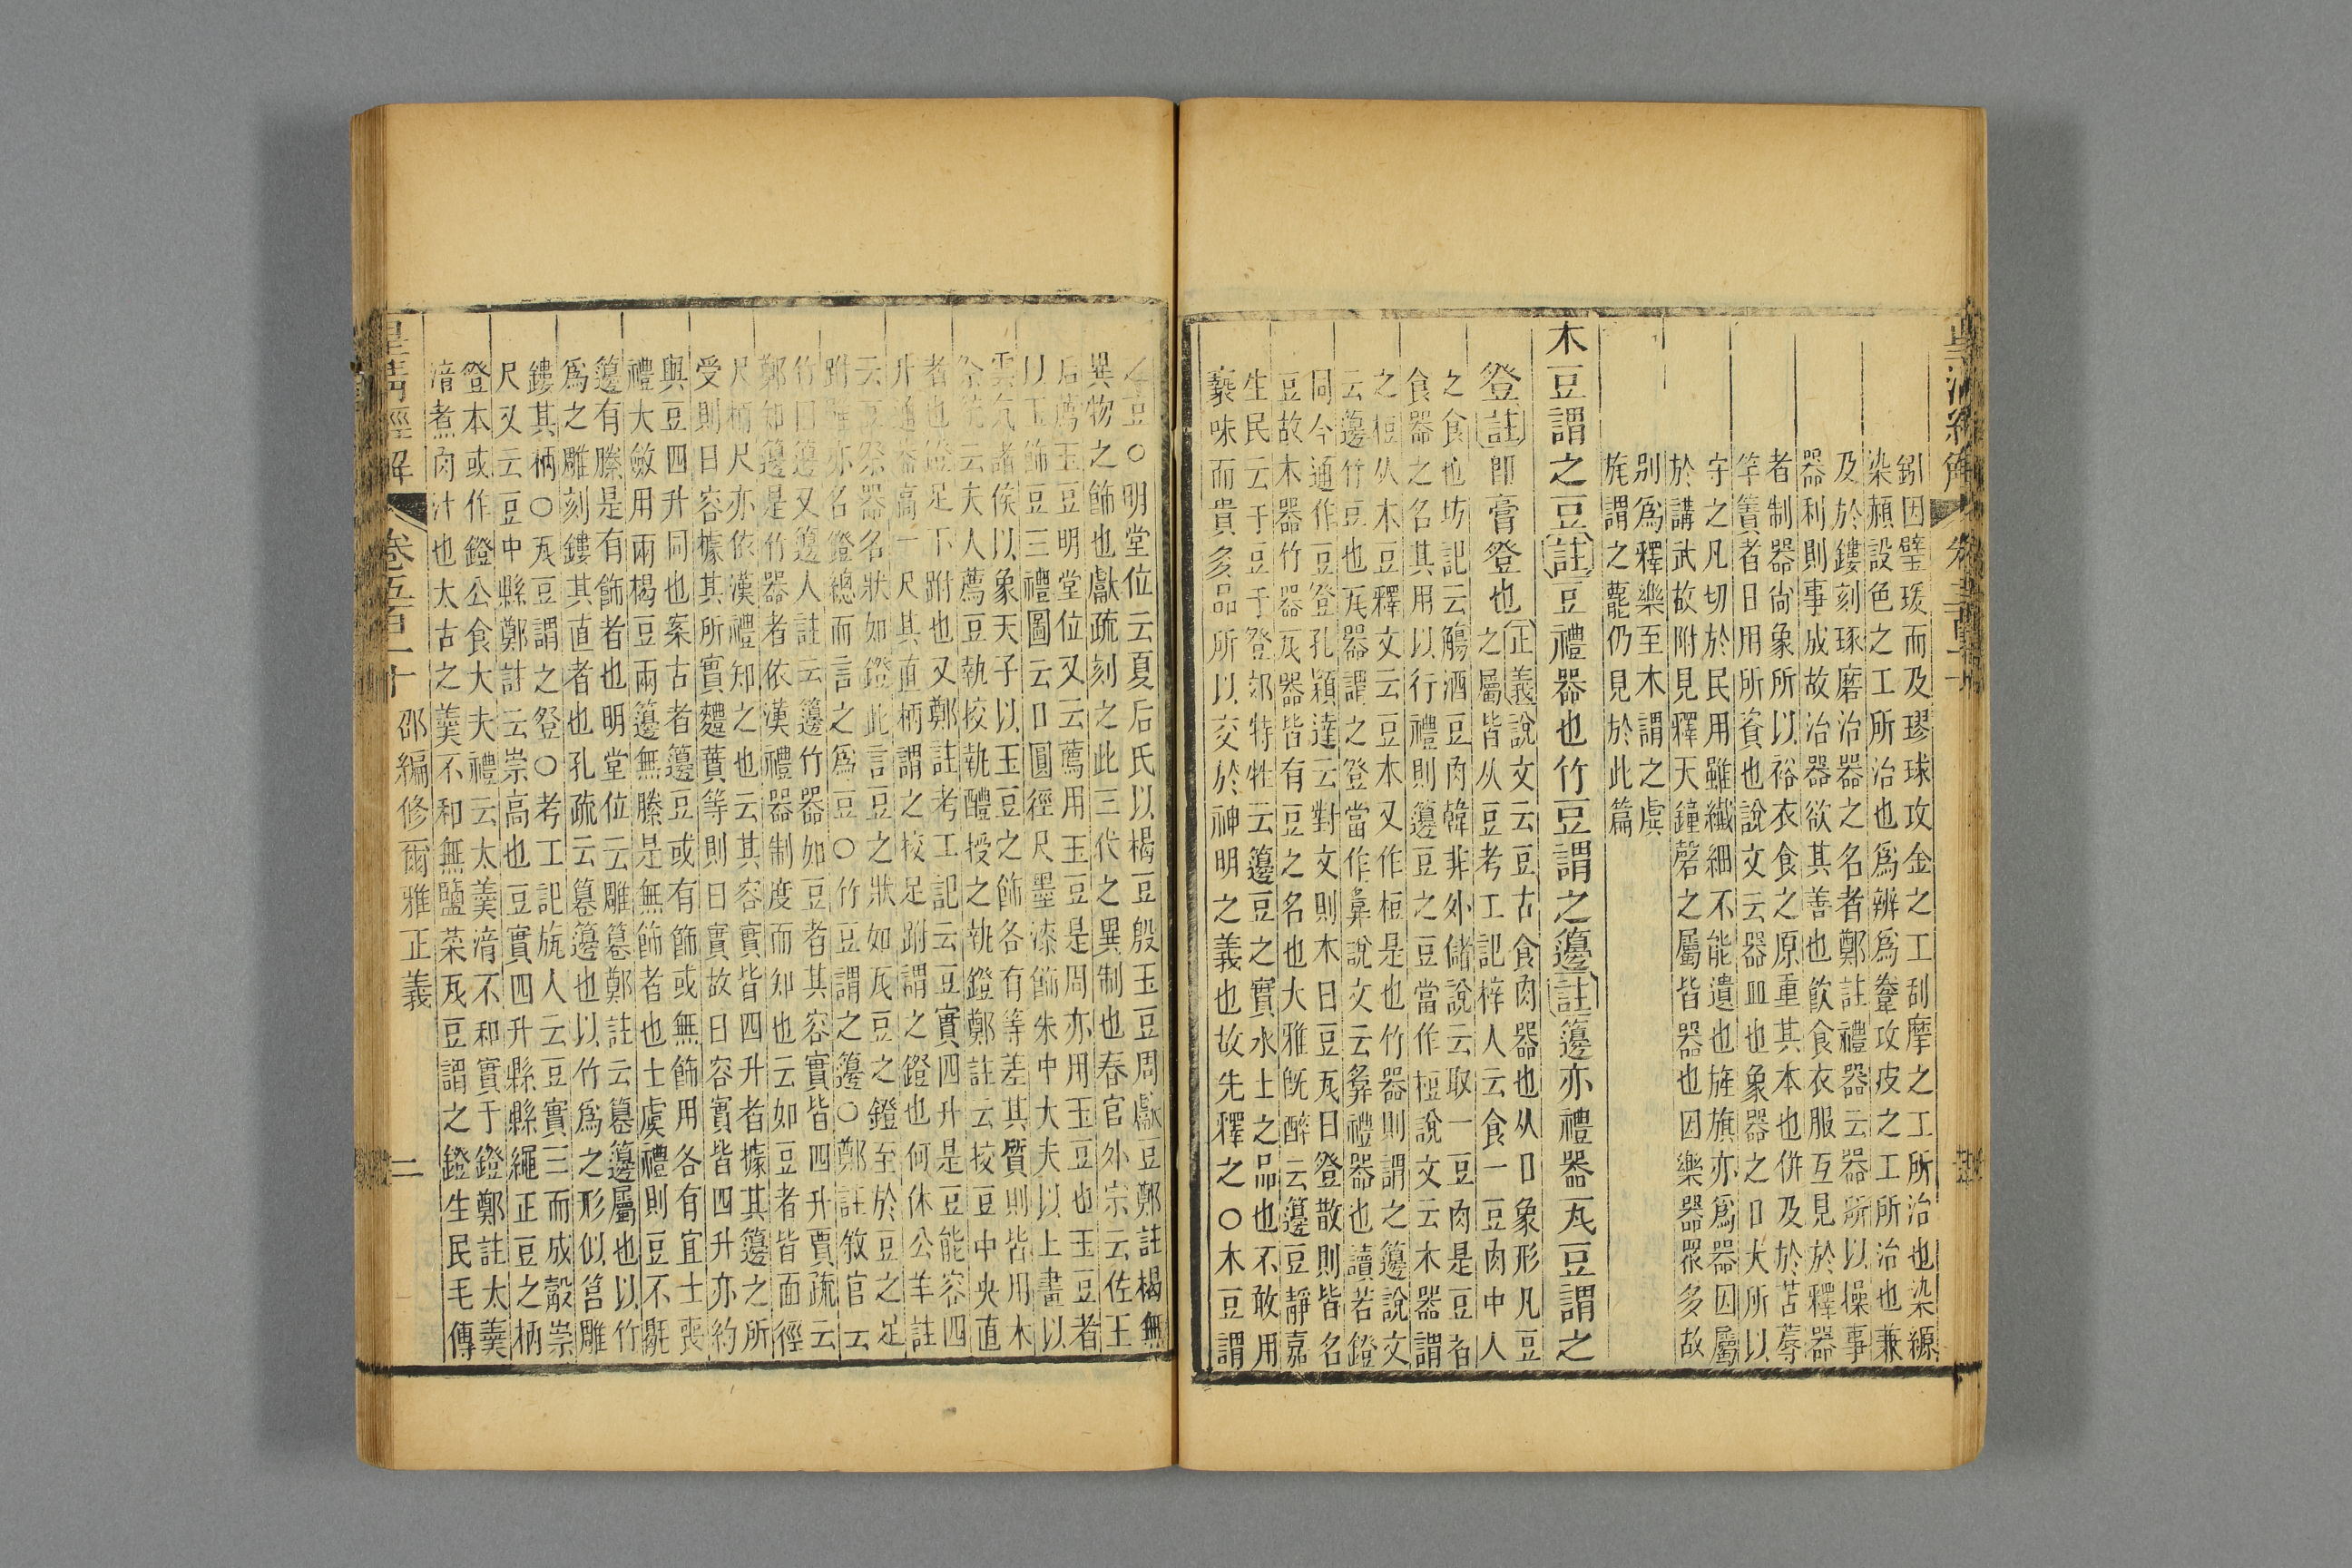 釼因璧瑗而及璆球攻金之工刮摩之工所治也染縓
染赬設色之工所治也爲辨爲韏攻皮之工所治也兼
及於鏤刻琢磨治器之名者鄭註禮器云器所以操事
器利則事成故治器欲其善也飮食衣服互見於釋器
者制器尙象所以裕衣食之原重其本也倂及於苫蓐
竿簀者日用所資也說文云器皿也象器之口犬所以
守之凡切於民用雖纖細不能遺也旌旗亦爲器因屬
於講武故附見釋天鐘磬之屬皆器也因樂器眾多故
別爲釋樂至木謂之虡
旄謂之藣仍見於此篇
木豆謂之豆註豆禮器也竹豆謂之籩註籩亦禮器瓦豆謂之
登註卽膏登也正義說文云豆古食肉器也从口象形凡豆
之屬皆从豆考工記梓人云食一豆肉中人
之食也坊記云觴酒豆肉韓非外儲說云取一豆肉是豆者
食器之名其用以行禮則籩豆之豆當作梪說文云木器謂
之梪从木豆釋文云豆本又作梪是也竹器則謂之籩說文
云籩竹豆也瓦器謂之登當作𤼷說文云𤼷禮器也讀若鐙
同今通作豆登孔穎達云對文則木曰豆瓦曰登散則皆名
豆故木器竹器瓦器皆有豆之名也大雅旣醉云籩豆靜嘉
生民云于豆于登郊特牲云籩豆之實水土之品也不敢用
褻味而貴多品所以交於神明之義也故先釋之○木豆謂
之豆○明堂位云夏后氏以楬豆殷玉豆周獻豆鄭註楬無
異物之飾也獻疏刻之此三代之異制也春官外宗云佐王
后薦玉豆明堂位又云薦用玉豆是周亦用玉豆也玉豆者
以玉飾豆三禮圖云口圓徑尺墨漆飾朱中大夫以上畫以
雲气諸侯以象天子以玉豆之飾各有等差其質則皆用木
祭統云夫人薦豆執校執醴授之執鐙鄭註云校豆中央直
者也鐙足下跗也又鄭註考工記云豆實四升是豆能容四
升通葢高一尺其直柄謂之校足跗謂之鐙也何休公羊註
云豆祭器名狀如鐙此言豆之狀如瓦豆之鐙至於豆之足
跗雖亦名鐙總而言之爲豆○竹豆謂之籩○鄭註攷官云
竹曰籩又籩人註云籩竹器如豆者其容實皆四升賈疏云
鄭知籩是竹器者依漢禮器制度而知也云如豆者皆面徑
尺柄尺亦依漢禮知之也云其容實皆四升者據其籩之所
受則曰容據其所實麷蕡等則曰實故曰容實皆四升亦約
與豆四升同也案古者籩豆或有飾或無飾用各有宜士喪
禮大斂用兩楬豆兩籩無縢是無飾者也士虞禮則豆不楬
籩有縢是有飾者也明堂位云雕篹鄭註云篹籩屬也以竹
爲之雕刻鏤其直者也孔疏云篹籩也以竹爲之形似筥雕
鏤其柄○瓦豆謂之登○考工記旊人云豆實三而成觳崇
尺又云豆中縣鄭註云崇高也豆實四升縣縣繩正豆之柄
登本或作鐙公食大夫禮云大羹湆不和實于鐙鄭註大羹
湆煮肉汁也太古之羹不和無鹽菜瓦豆謂之鐙生民毛傳
皇淸經解 卷五百一十 邵編修爾雅正義 二